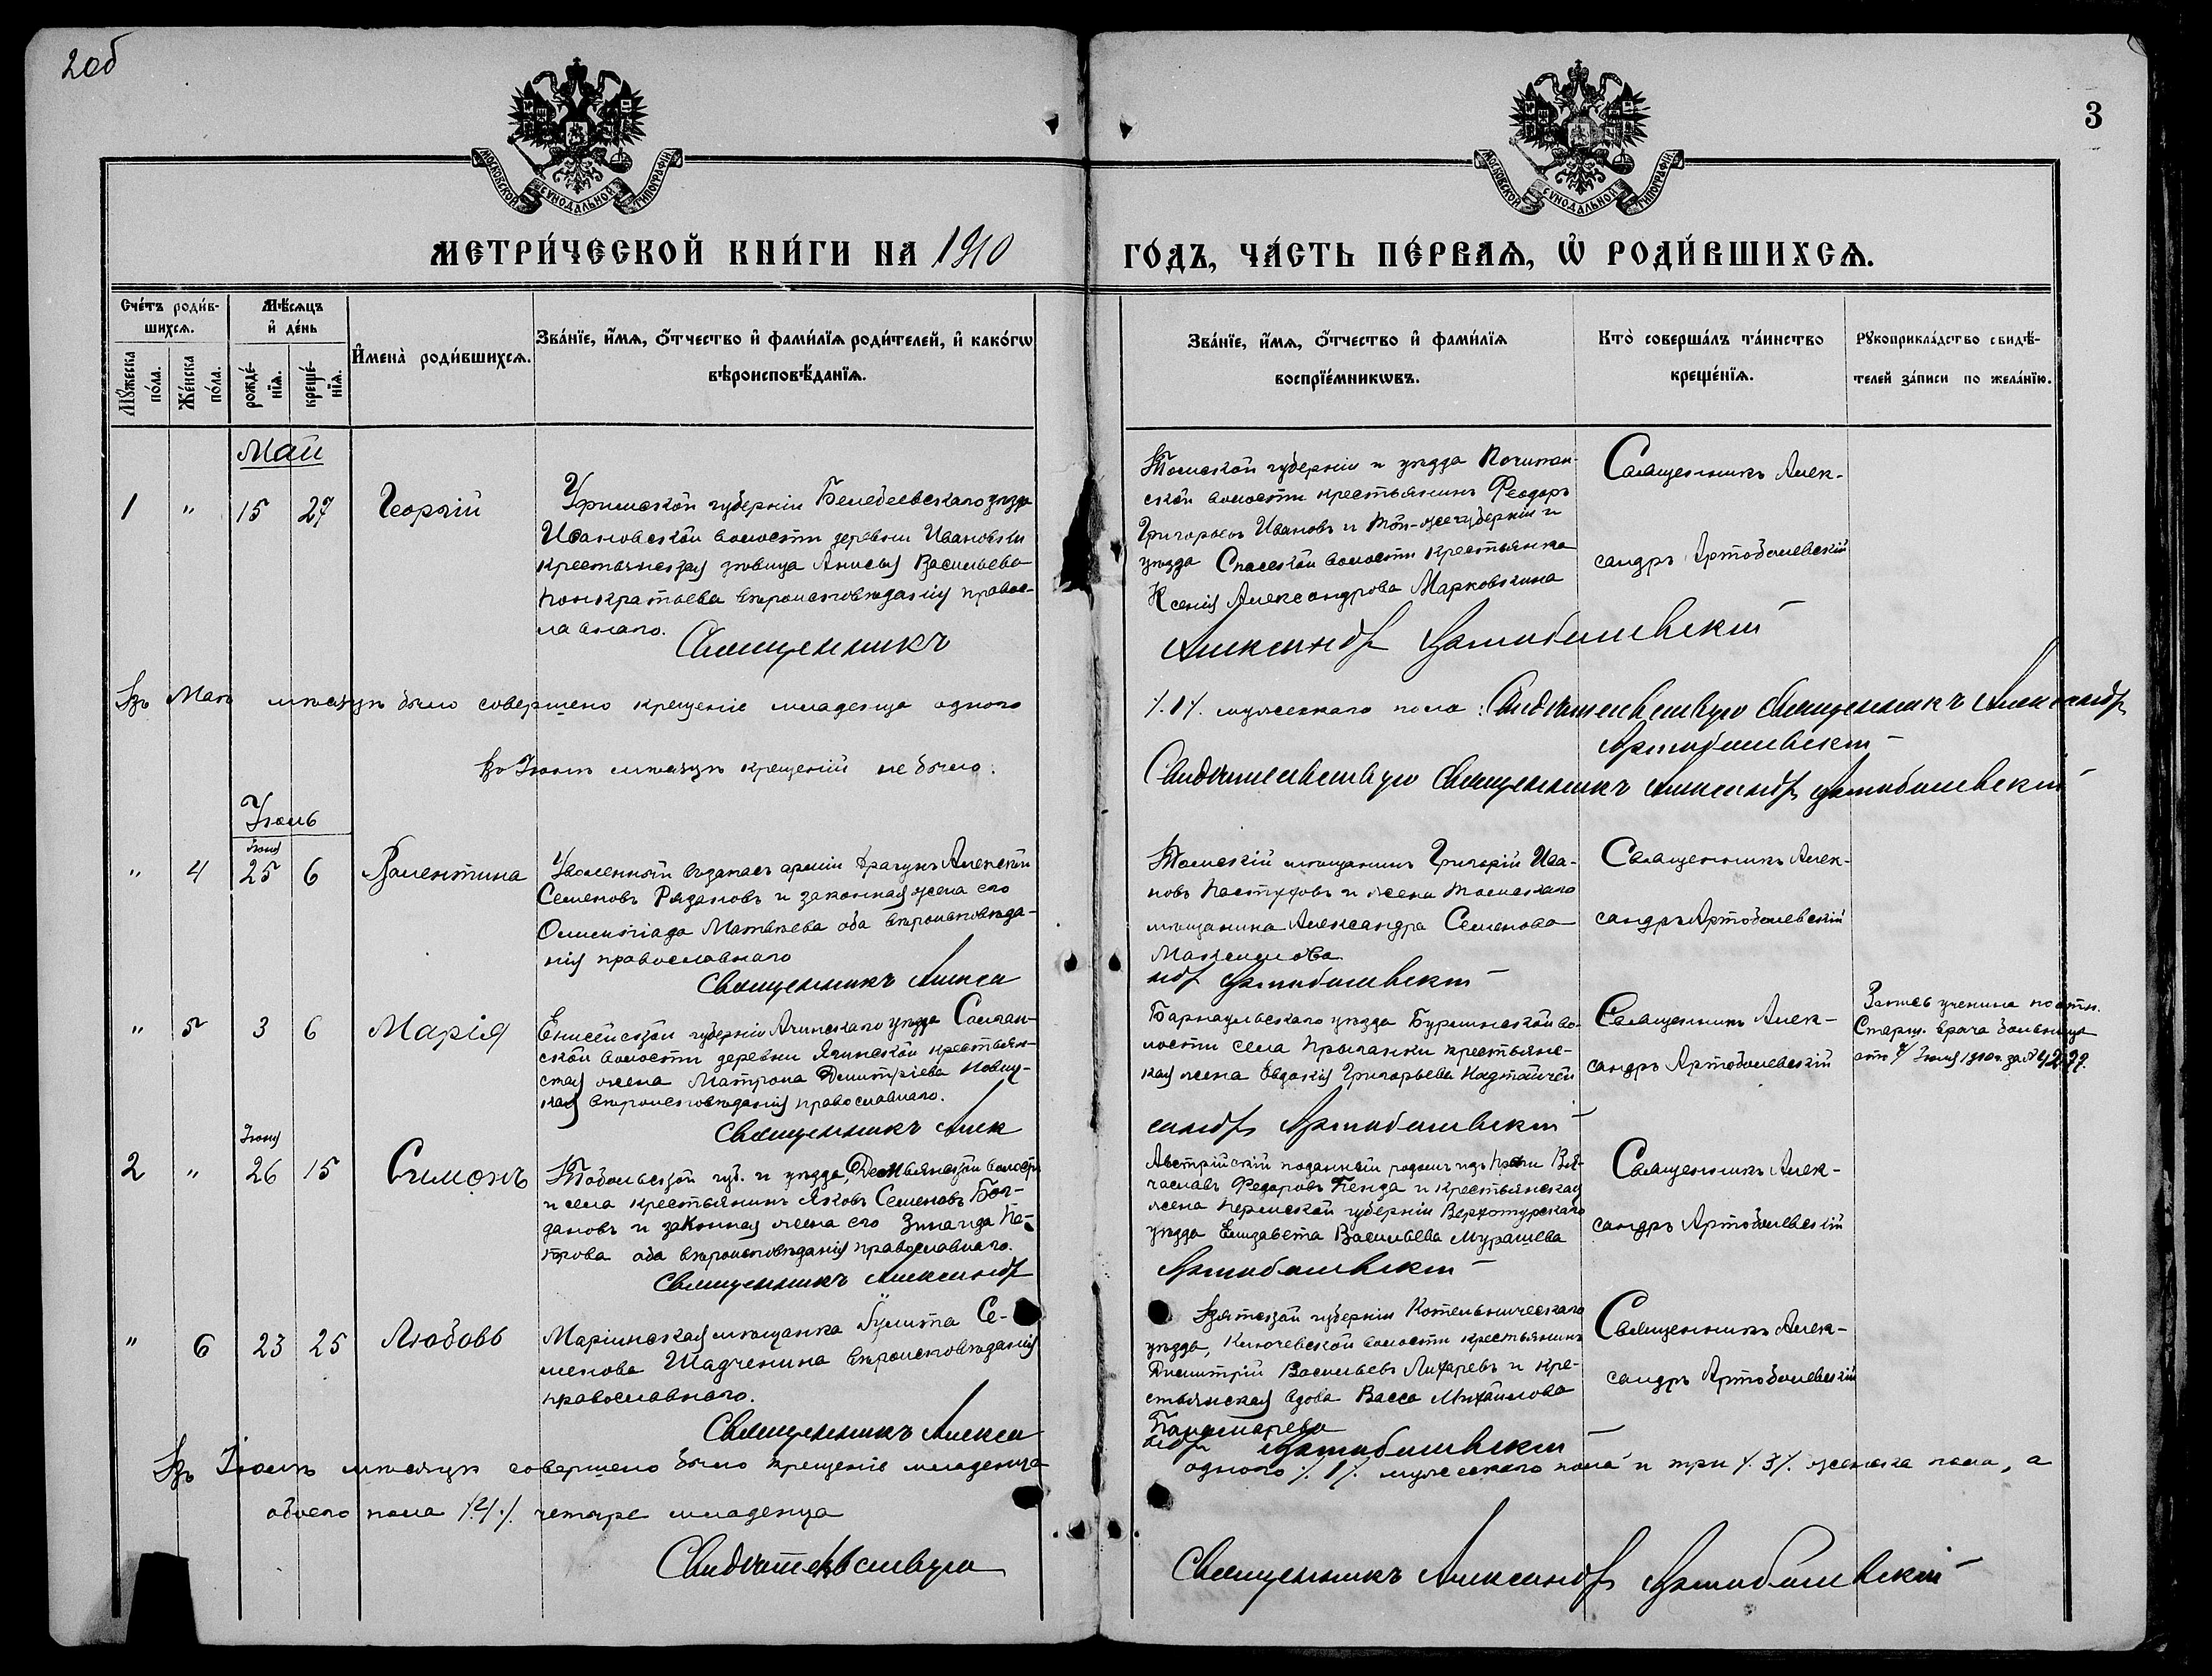 2об
3
МОСКОВСКОЙ СѴНОДАЛЬНОЙ ТИПОГРАФІИ
МОСКОВСКОЙ СѴНОДАЛЬНОЙ ТИПОГРАФІИ
МЕТРИ́ЧЕСКОЙ КНИ́ГИ НА 1910
ГО́ДЪ, ЧА́СТЬ ПЕ́РВАѦ, Ѡ҆ РОДИ́ВШИХСѦ.
Сче́тъ роди́в-
шихсѧ.
Мꙋ́жеска
по́ла.
Же́нска
по́ла.
Мѣ́сѧцъ
и҆ де́нь
рожде́-
нїѧ.
креще́-
нїѧ.
И҆мена̀ роди́вшихсѧ.
Зва́нїе, и҆́мѧ, ѻ҆́тчество и҆ фами́лїѧ роди́телей, и҆ како́гѡ
вѣроисповѣ́данїѧ.
Зва́нїе, и҆́мѧ, ѻ҆́тчество и҆ фами́лїѧ
воспрїе́мникѡвъ.
Кто̀ соверша́лъ та́инство
креще́нїѧ.
Рꙋкоприкла́дство свидѣ́-
телей за́писи по жела́нїю.
Май
1 " 15 27 Георгій
Уфимской губерніи Белебеевскаго уѣзда
Ивановской волости деревни Ивановки
крестьянская дѣвица Анисья Васильева
Понкратьева вѣроисповѣданія правос-
лавнаго.
Священникъ
Томской губерніи и уѣзда Почитан-
ской волости крестьянинъ Феодоръ
Григорьевъ Ивановъ и той-же губерніи и
уѣзда Спасской волости крестьянка
Ксенія Александрова Марковкина
Александръ Артоболевскій
Священникъ Алек-
сандръ Артоболевскій
Въ Маѣ мѣсяцѣ было совершено крещеніе младенца одного
/.1/. мужескаго пола: Свидѣтельствую Священникъ Александръ
Артоболевскій
Въ Іюнѣ мѣсяцѣ крещеній не было.
Свидѣтельствую Священникъ Александръ Артоболевскій
Іюль
Іюня
" 4 25 6 Валентина
Уволенный въ запасъ арміи драгунъ Алексѣй
Семеновъ Рязановъ и законная жена его
Олимпіада Матвѣева оба вѣроисповѣда-
нія православнаго
Священникъ Алекса
Томскій мѣщанинъ Григорій Ива-
новъ Пастуховъ и жена томскаго
мѣщанина Александра Семенова
Максимова
ндръ Артоболевскій
Священникъ Алек-
сандръ Артоболевскій
" 5 3 6 Марія
Енисейской губерніи Ачинскаго уѣзда
ской волости деревни Ячинской крестьян-
ская жена Матрона Димитріева Новиц-
кая вѣроисповѣданія православнаго.
Священникъ Алек
Барнаульскаго уѣзда Бурлинской во-
лости села Прыганки крестьянс-
кая жена Евдокія Григорьева
сандръ Артоболевскій
Священникъ Алек-
сандръ Артоболевскій
Запись учинена по отн.
Старш. врача больницы
Іюня
2 " 26 15 Симонъ
Тобольской губ. и уѣзда, Демьянской волости
и села крестьянинъ Яковъ Семеновъ Бог-
дановъ и законная жена его Зинаида Пе-
трова оба вѣроисповѣданія православнаго.
Священникъ Александръ
Австрійскій подданный родомъ изъ Праги Вя-
чеславъ Федоровъ Пенда и крестьянская
жена Пермской губерніи Верхотурскаго
уѣзда Елизавета Васильева Мурашева
Артоболевскій
Священникъ Алек-
сандръ Артоболевскій
" 6 23 25 Любовь
Маріинская мѣщанка Іулита Се-
менова Шадченина вѣроисповѣданія
православнаго.
Священникъ Алекса
Вятской губерніи Котельническаго
уѣзда, Ключевской волости крестьянинъ
Димитрій Васильевъ Лихаревъ и кре-
стьянская вдова Васса Михайлова
Понамарева
ндръ Артоболевскій
Священникъ Алек-
сандръ Артоболевскій
Въ Іюлѣ мѣсяцѣ совершено было крещеніе младенца
одного /.1/. мужескаго пола и три /.3/. женска пола, а
обоего пола /.4./. четыре младенца
Свидѣтельствую
Священникъ Александръ Артоболевскій